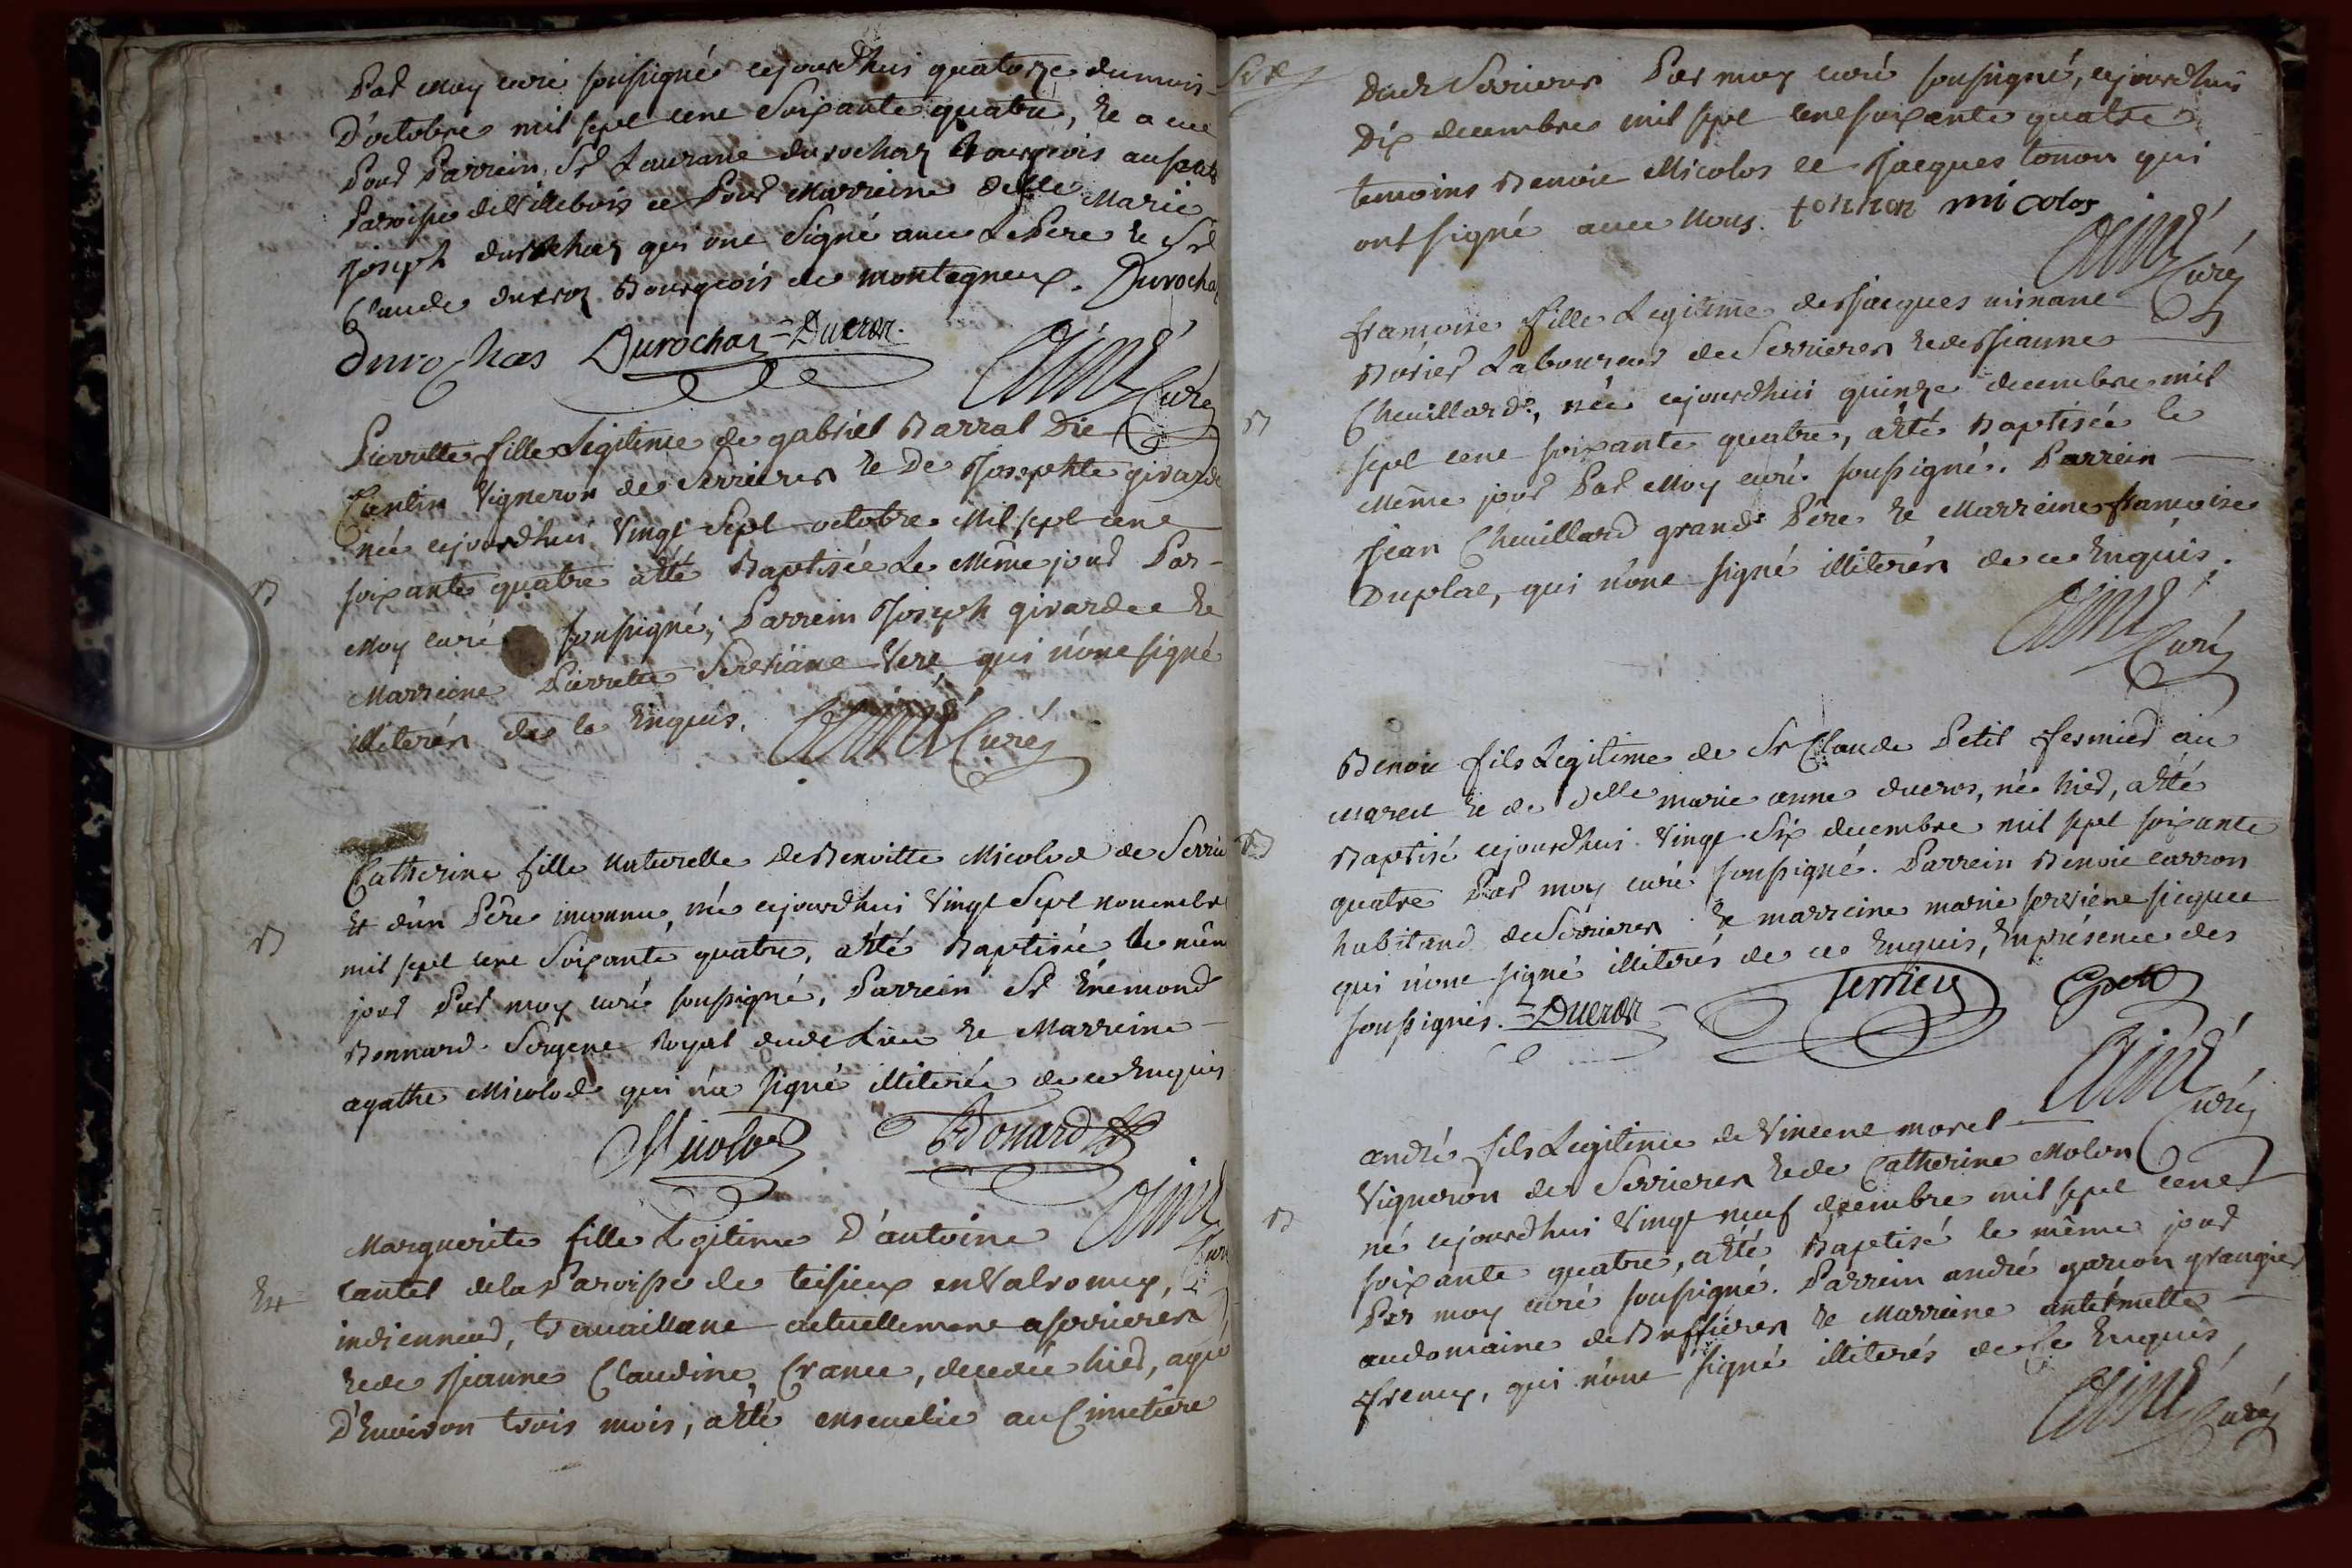 Par moy curé soussigné cejourdhui quatorze du mois
D'octobre mil sept cent Soixante quatre, et a eue
Pour Parrein Sr Laurant durochat Bourgeois au
Paroisse de Villebois et Pour Marreine delle Marie
Joseph durochat qui ont Signé avec Le Pere et Sr
Claude ducros Bourgeois de montagneux. Durochat
durochas Durochat Ducros
Aimé Curé
Pierrette fille Legitime de gabriel Barral Dit
Cantin Vigneron de Serrieres et De Josephte girarde
née cejourdhui Vingt Sept octobre Mil sept cent
B
soixante quatre a été Baptisée Le Même jour Par
Moy curé soussigné, Parrein Joseph girard et
Marreine Pierrette Vere, qui n'ont signé
illiterés de ce Enquis. Aimé Curé
Catherine fille naturelle de Benoitte Micolod de Serrie
Et d'un Père inconnu, née cejourdhui Vingt Sept novembre
B
mil sept cent Soixante quatre, a été Baptisée le mêm
jour Par moy curé soussigné, Parrein Sr Enemond
Bonnard Sergent Royal dudt Lieu et Marreine
agathe Micolod qui n'a signé illiterée de ce Enquis
Micolod Bonard
Aimé Curé
Marguerite fille Legitime D'antoine
Et
cantet de la Paroisse de teisieux en Valromey,
indienneur, travaillant actuellement a serrieres
et de Jeanne Claudine, decedée hier, agée
D'Environ trois mois, a été ensevelie au Cimetière
Dudt Serrieres Par moy curé soussigné, cejourdhui
Dix decembre mil sept cent soixante quatre
temoins Benoit Micolos et Jacques tonon qui
ont signé avec Nous. tonnon micolos
Aimé Curé
francoise fille Legitime de Jacques
Laboureur de Serrieres et de Jeanne
Cheuillard, née cejourdhui quinze decembre mil
B
sept cent soixante quatre, a été Baptisée le
Même jour Par Moy curé soussigné. Parrein
Jean Cheuillard grand Père et Marreine francoise
Duplat, qui n'ont signé illiterés de ce Enquis.
Aimé Curé
Benoit fils Legitime de Sr Claude Petit fermier au
marest et de delle marie anne ducros, né hier, a été
B
Baptisé cejourdhui Vingt Six decembre mil sept soixante
quatre Par moy curé soussigné. Parrein Benoit carron
habitant de Serrieres et marreine marie
qui n'ont signé illiterés de ce Enquis, En présence des
soussignés. Ducros Terrier Petit
Aimé Curé
andré fils Legitime de Vincent morel
Vigneron de Serrieres et de Catherine Molon
B
né cejourdhui Vingt neuf decembre mil sept cent
soixante quatre, a été Baptisé le même jour
Par moy curé soussigné. Parrein andré garcon grangier
au domaine de Buffieres et Marreine antelmette
fremy, qui n'ont signé illiterés de ce Enquis,
Aimé Curé